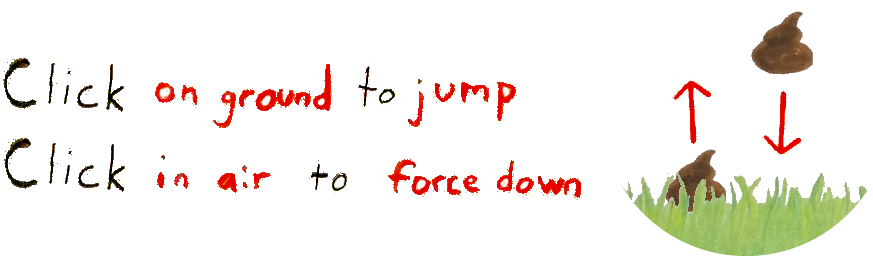 Click on ground to jump
Click in air to force down